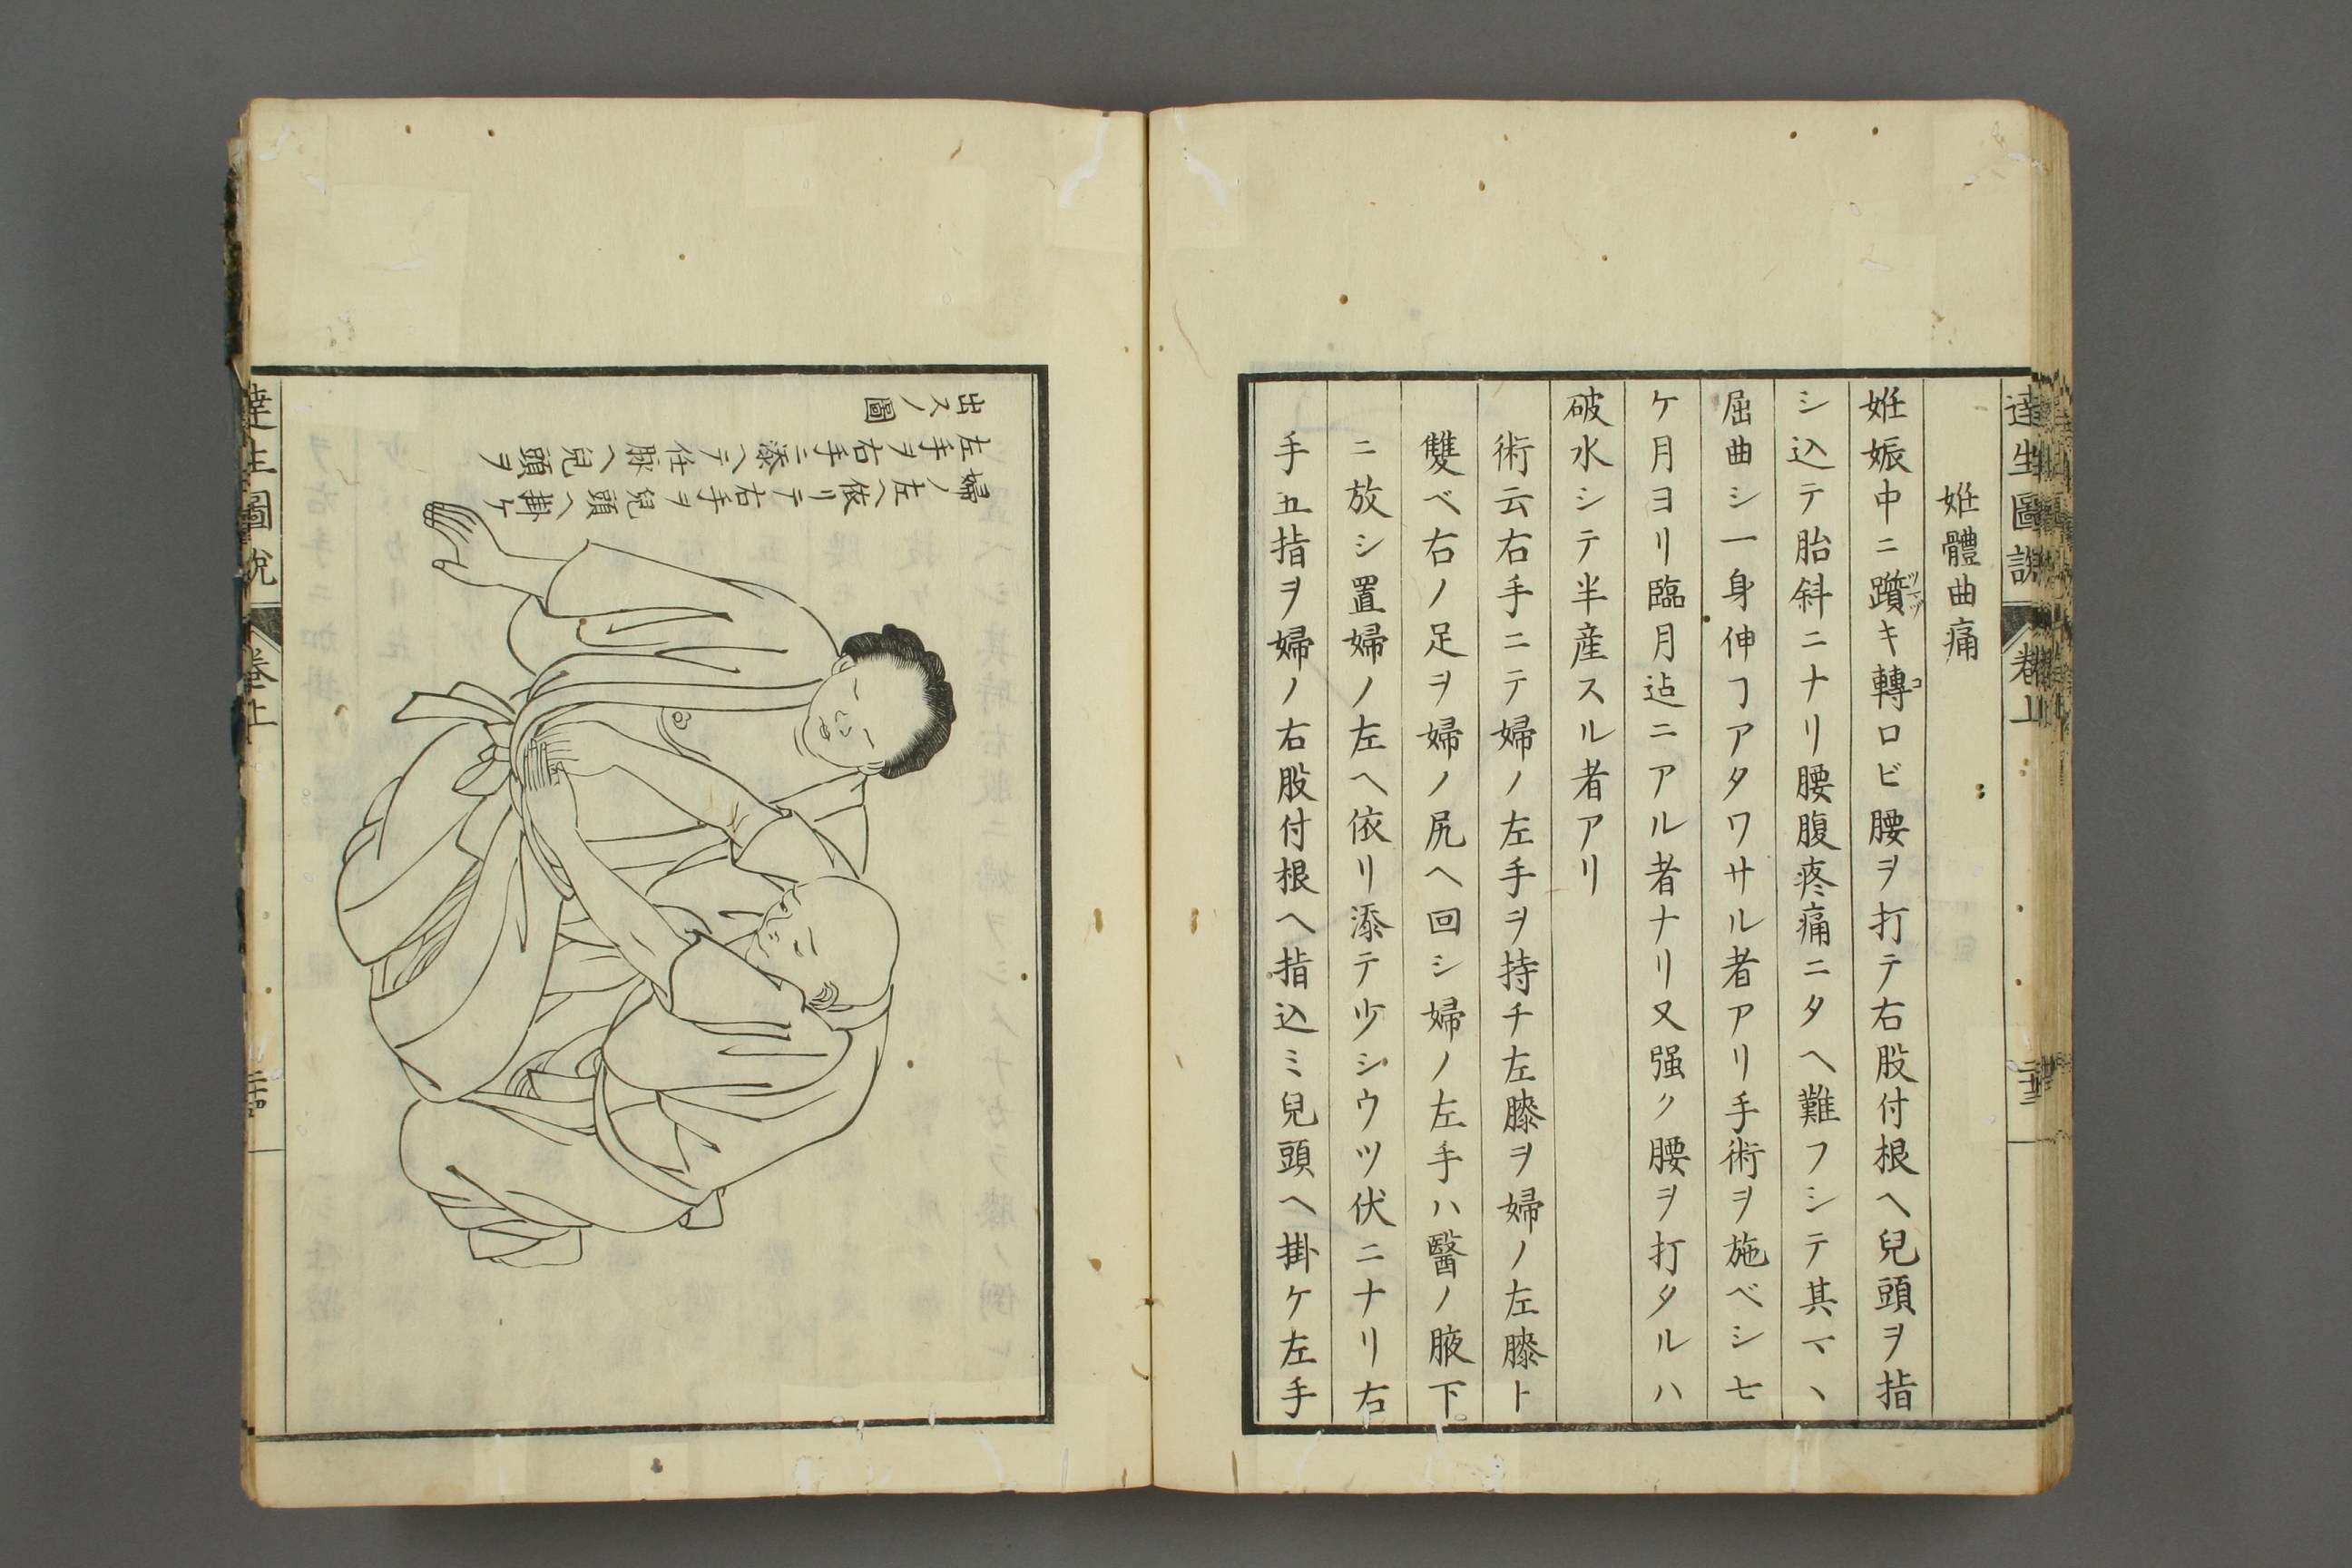 達生圖説 卷上 二十三
姙體曲痛
姙娠中ニ躓キ轉ロビ腰ヲ打テ右股付根ヘ兒頭ヲ指
ツマヅ
コ
シ込テ胎斜ニナリ腰腹疼痛ニタヘ難フシテ其マヽ
屈曲シ一身伸ヿアタワサル者アリ手術ヲ施ベシ七
ケ月ヨリ臨月迠ニアル者ナリ又强ク腰ヲ打タルハ
破水シテ半産スル者アリ
術云右手ニテ婦ノ左手ヲ持チ左膝ヲ婦ノ左膝ト
雙ベ右ノ足ヲ婦ノ尻ヘ回シ婦ノ左手ハ醫ノ腋下。
ニ放シ置婦ノ左ヘ依リ添テ少シウツ伏ニナリ右
手五指ヲ婦ノ右股付根ヘ指込ミ兒頭ヘ掛ケ左手
婦ノ左ヘ依リテ右手ヲ兒頭ヘ掛ケ
左手ヲ右手ニ添ヘテ任脉ヘ兒頭ヲ
出スノ圖
達生圖説 卷上 二十四